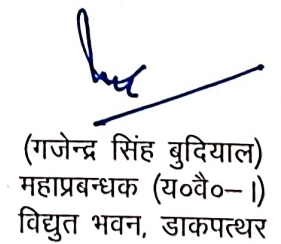 (गजेन्द्र सिंह बुदियाल)
महाप्रबन्धक (य०वै०–।)
विद्युत भवन, डाकपत्थर